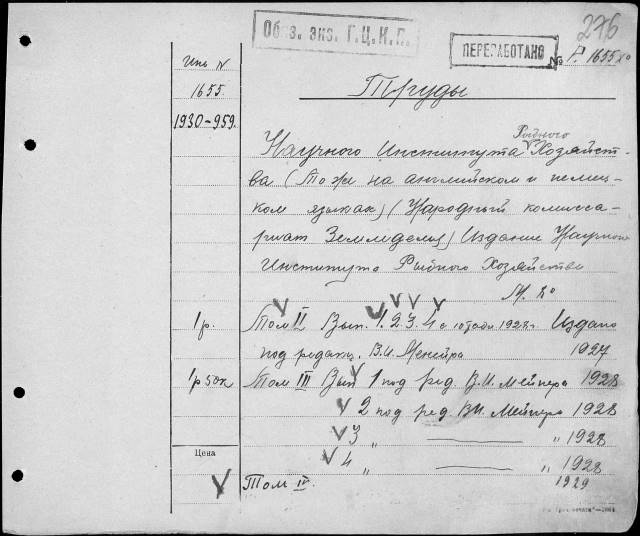 Обяз. экз. Г.Ц.К.П.
276
ПЕРЕРАБОТАНО
№ Р. 1655 8º
Инв N
1655
1930-959.
Труды
Рыбного
Научного Института Хозяйст-
ва (То же на английском и немец-
ком языках) (Народный комисса-
риат Земледелия) Издание Научного
Института Рыбного Хозяйства
М. 8º
1р. Том II Вып. 1. 2. 3. 4 1928г. Издано
под редакц. В.И. Мейера 1927
1р 50к Том III Вып 1 под ред. В.И. Мейнера 1928
2 под ред. В.И. Мейнера 1928
3 „ — „ 1928
4 „ — „ 1928
Цена
Том IV. 1929